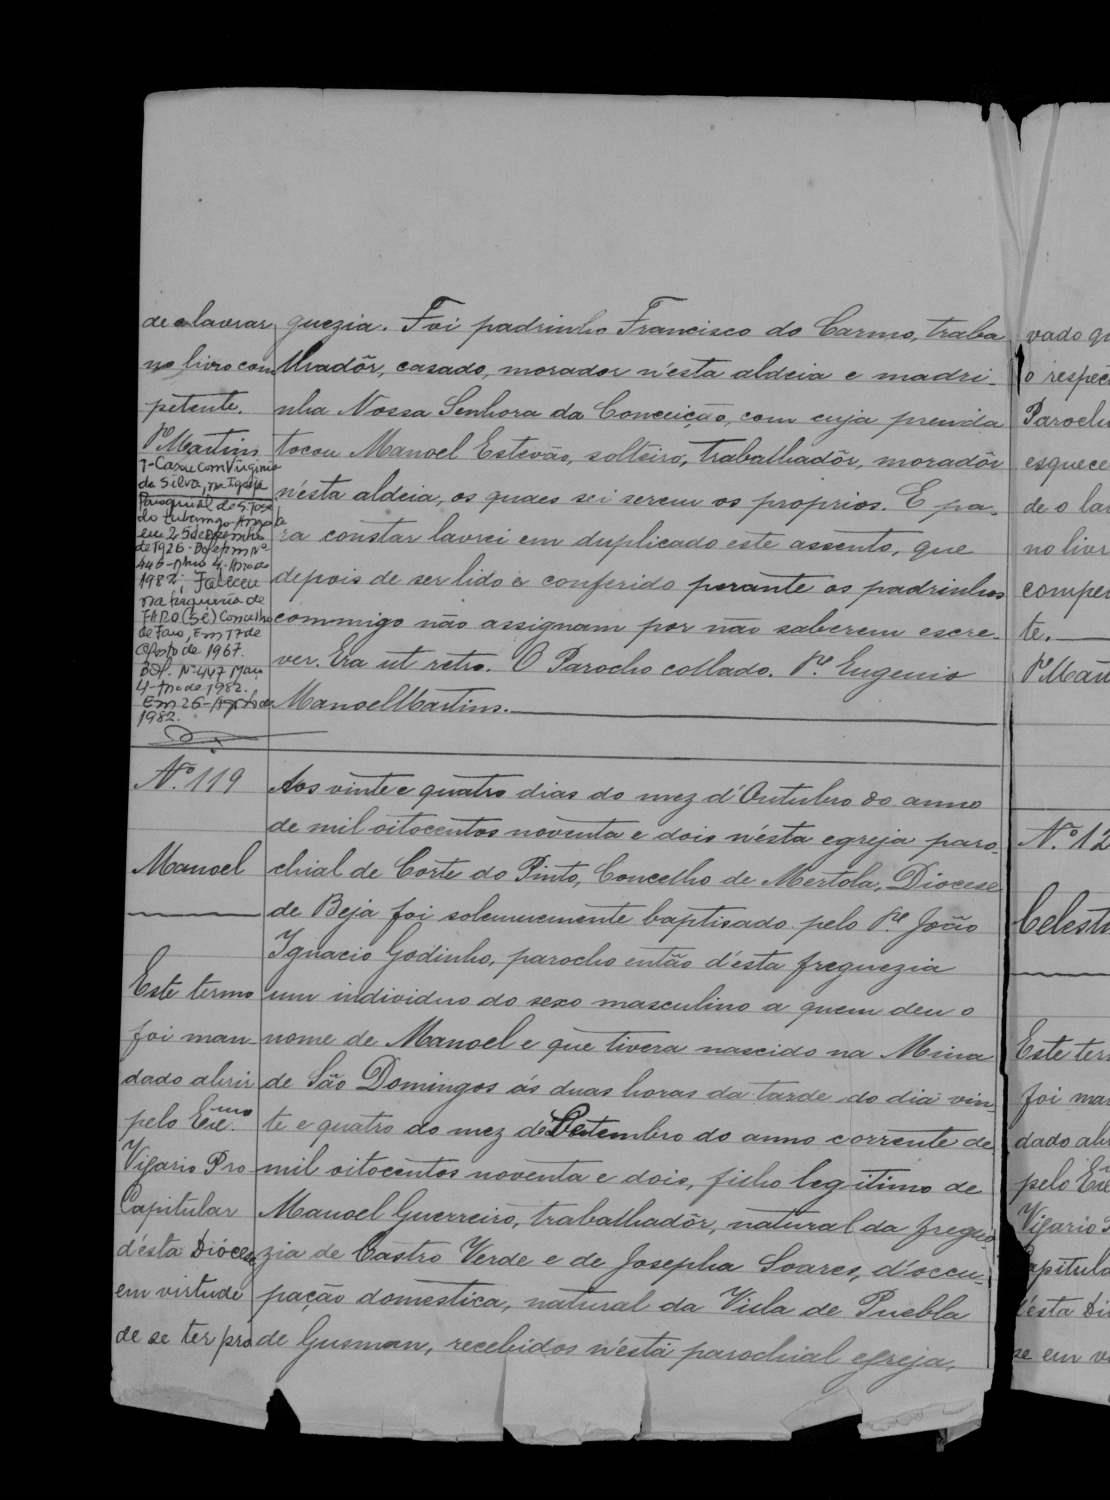 de o lavrar
no livro com
petente.
P.e Martins
1-Casou com Virginia
da Silva, na Igreja
Paroquial de S. José
do Lubango-Angola
em 25 de
de 1926 - Boletim Nº
446 - Maço 4-Ano de
1982; Faleceu
na freguesia de
FARO (Sé) Concelho
de Faro, Em 17 de
Agosto de 1967.
Bol. Nº 447 Maço
4-Ano de 1982.
Em 26-Agosto de
1982.
guezia. Foi padrinho Francisco do Carmo, traba
lhadôr, casado, morador n'esta aldeia e madri-
nha Nossa Senhora da Conceição, com cuja prenda
tocou Manoel Estevão, solteiro, trabalhadôr, moradôr
n'esta aldeia, os quaes sei serem os proprios. E pa-
ra constar lavrei em duplicado este assento, que
depois de ser lido e conferido perante os padrinhos
commigo não assignam por não saberem escre-
ver. Era ut retro. O Parocho collado. P.e Eugenio
Manoel Martins.
N.º 119
Manoel
Este termo
foi man
dado abrir
pelo Exc.mo
Vigario Pro
Capitular
d'esta Diócese
em virtude
de se ter pro
Aos vinte e quatro dias do mez d'Outubro do anno
de mil oitocentos noventa e dois n'esta egreja paro-
chial de Corte do Pinto, Concelho de Mertola, Diocese
de Beja foi solemnemente baptisado pelo P.e João
Ignacio Godinho, parocho então d'esta freguezia
um individuo do sexo masculino a quem deu o
nome de Manoel e que tivera nascido na Mina
de São Domingos ás duas horas da tarde do dia vin
te e quatro do mez de Setembro do anno corrente de
mil oitocentos noventa e dois, filho legitimo de
Manoel Guerreiro, trabalhadôr, natural da fregue
zia de Castro Verde e de Josepha Soares, d'occu-
pação domestica, natural da Villa de Puebla
de Gusman, recebidos n'esta parochial egreja,
vado qu
o respec
Parocho
esquece
de o lav
no livr
compet
te.
P.e Mart
N.º 12
Celest
Este ter
foi man
dado abr
pelo Exc
Vigario P
apitula
d'ésta Di
se em v